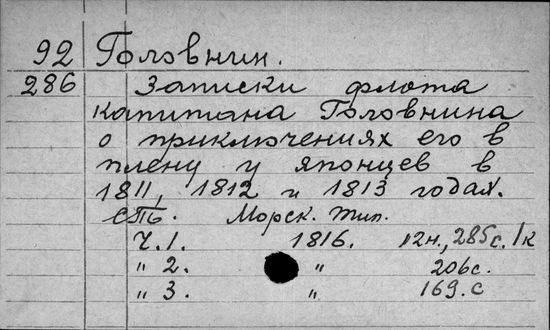 92 Головнин.
286 Записки флота
капитана Головнина
о приключениях его в
плену у японцев в
1811, 1812 и 1813 годах.
СПб. Морск. тип.
Ч. 1. 1816. 285с. 1к
" 2. " 206с.
" 3. " 169.с